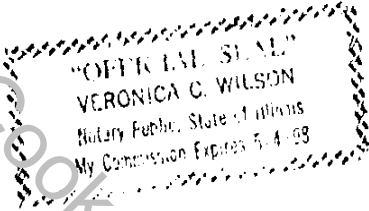 "OFFICIAL SEAL"
VERONICA C. WILSON
Notary Public, State of Illinois
My Commission Expires 5-4-98
Cook